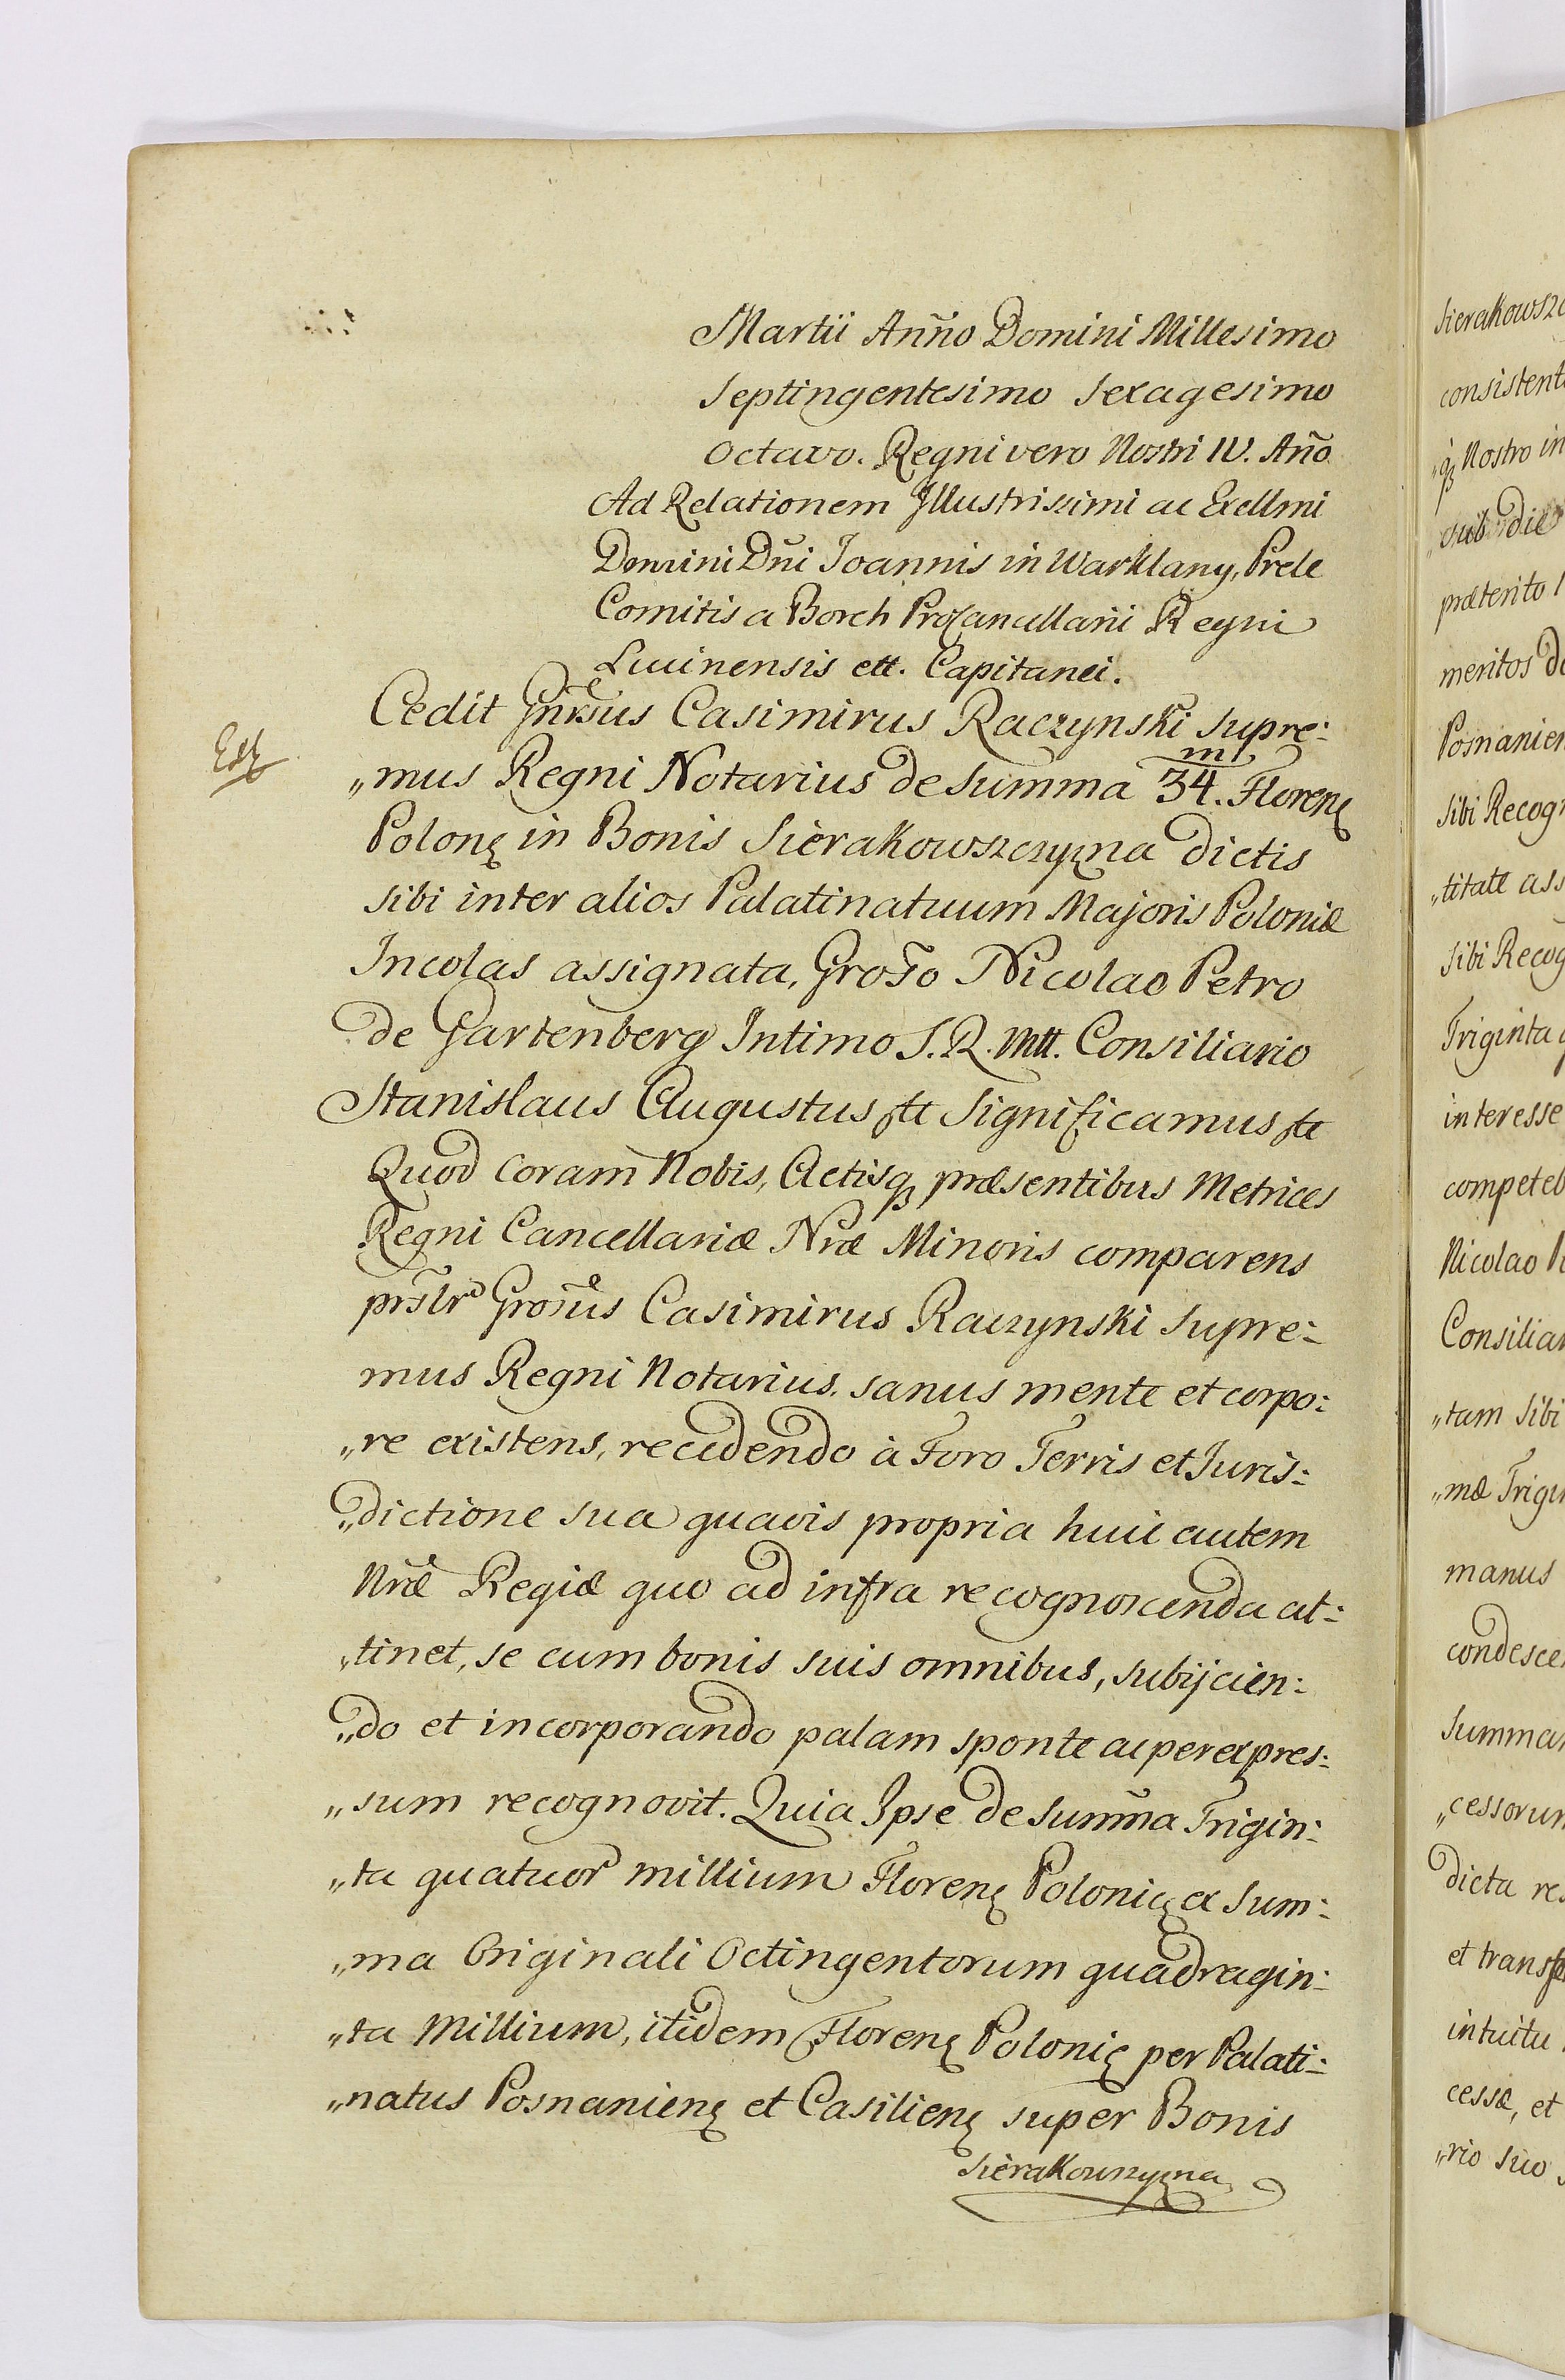 Martii Anño Domini Millesimo
Septingentesimo Sexagesimo
Octavo. Regni vero Nostri IV. Año
Ad Relationem Illustrissimi ac Exellmi
Domini Dñi Joannis in Warklany, Prele
Comitis a Borch ProCancellarii Regni
Lucinensis ett. Capitanei.
Cedit Casimirus Raczynski Supre:
„mus Regni Notarius de Summa 34.m Floren
Polon in Bonis Sierakowszczyzna dictis
sibi inter alios Palatinatuum Majoris Poloniæ
Incolas assignata, Groso Nicolao Petro
de Gartenberg Intimo S.R.Mtt. Consiliario
Stanislaus Augustus ett Significamus ett
Quod coram Nobis, Actisq præsentibus Metrices
Regni Cancellariæ Nræ Minoris comparens
prslr Grosus Casimirus Raczynski Supre:
mus Regni Notarius, sanus mente et corpo:
„re existens, recedendo à Foro Terris et Juris:
„dictione sua quavis propria huic autem
Nræ Regiæ quo ad infra recognoscenda at:
„tinet, se cum bonis suis omnibus, subijcien:
„do et incorporando palam sponte ac per expres:
„sum recognovit. Quia Ipse de Sum̃a Trigin:
„ta quatuor millium Floren Polonic ex Sum:
„ma Originali Octingentorum quadragin:
„ta Millium, itidem Floren Polonic per Palati:
„natus Posnanien et Casilien super Bonis
Sierakowszyzna
Sierakowszc
consistent
„q Nostro in
„sub die
præterito
meritos
Posnanien
Sibi Recog
„titate ass
Sibi Recog
Triginta
interesse
competeb
Nicolao
Consiliar
„tam Sibi
„mæ Trigin
manus
condesce
Summa
„cessorum
dicta res
et transf
intuitu
cessæ, et
„rio suo